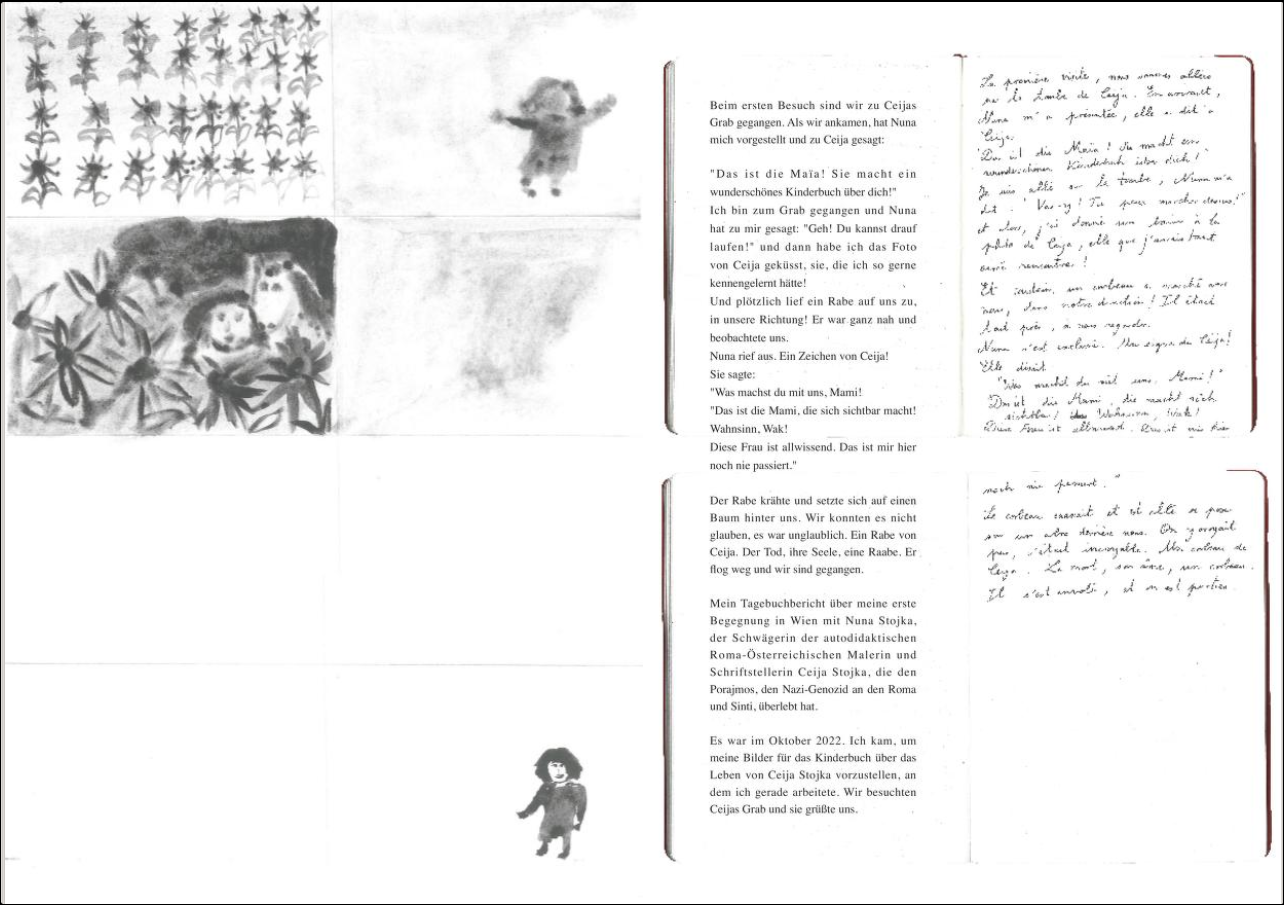 Beim ersten Besuch sind wir zu Ceijas
Grab gegangen. Als wir ankamen, hat Nuna
mich vorgestellt und zu Ceija gesagt:
"Das ist die Maïa! Sie macht ein
wunderschönes Kinderbuch über dich!"
Ich bin zum Grab gegangen und Nuna
hat zu mir gesagt: "Geh! Du kannst drauf
laufen!" und dann habe ich das Foto
von Ceija geküsst, sie, die ich so gerne
kennengelernt hätte!
Und plötzlich lief ein Rabe auf uns zu,
in unsere Richtung! Er war ganz nah und
beobachtete uns.
Nuna rief aus. Ein Zeichen von Ceija!
Sie sagte:
"Was machst du mit uns, Mami!
"Das ist die Mami, die sich sichtbar macht!
Wahnsinn, Wak!
Diese Frau ist allwissend. Das ist mir hier
noch nie passiert."
Der Rabe krähte und setzte sich auf einen
Baum hinter uns. Wir konnten es nicht
glauben, es war unglaublich. Ein Rabe von
Ceija. Der Tod, ihre Seele, eine Raabe. Er
flog weg und wir sind gegangen.
Mein Tagebuchbericht über meine erste
Begegnung in Wien mit Nuna Stojka,
der Schwägerin der autodidaktischen
Roma-Österreichischen Malerin und
Schriftstellerin Ceija Stojka, die den
Porajmos, den Nazi-Genozid an den Roma
und Sinti, überlebt hat.
Es war im Oktober 2022. Ich kam, um
meine Bilder für das Kinderbuch über das
Leben von Ceija Stojka vorzustellen, an
dem ich gerade arbeitete. Wir besuchten
Ceijas Grab und sie grüßte uns.
La première visite, nous sommes allées
sur la tombe de Ceija. En arrivant,
Nuna m'a présentée, elle a dit à
Ceija:
"Das ist die Maïa! Sie macht ein
wunderschönes Kinderbuch über dich!
Je suis allée sur la tombe, Nuna m'a
dit : "Vas-y! Tu peux marcher dessus!"
et alors, j'ai donné un baiser à la
photo de Ceija, elle que j'aurais tant
aimé rencontrer!
Et soudain, un corbeau a marché vers
nous, dans notre direction! Il était
tout près, à nous regarder.
Nuna s'est exclamée. Un signe de Ceija!
Elle disait
"Was machst du mit uns, Mami!"
"Das ist die Mami, die macht sich
sichtbar! Wahnsinn, Wak!
Diese Frau ist allwissend. Das ist mir hier
noch nie passiert."
Le corbeau croassait et est allé se poser
sur un arbre derrière nous. On y croyait
pas, c'était incroyable. Un corbeau de
Ceija. La mort, son âme, un corbeau.
Il s'est envolé, et on est parties.